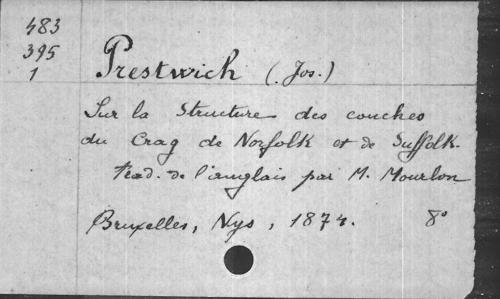 483
395
1
Prestwich (Jos.)
Sur la Structure des couches
du Crag de Norfolk et de Suffolk.
Trad. de l'anglais par M. Mourlon
Bruxelles, Nys, 1874. 8°